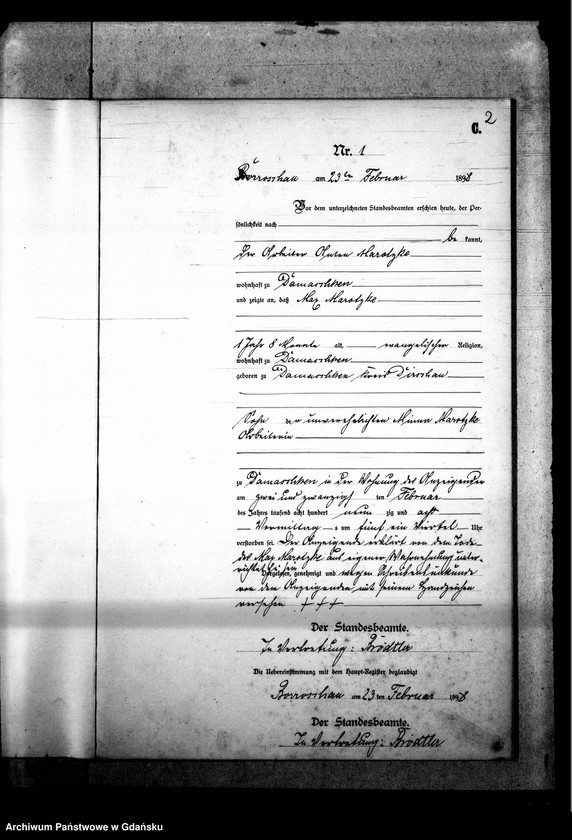 2
C.
Nr. 1
Borroschau am 23ten Februar 1898
Vor dem unterzeichneten Standesbeamten erschien heute, der Per-
sönlichkeit nach
be kannt,
der Arbeiter Anton Marotzke
wohnhaft zu Damaschken
und zeigte an, daß Max Marotzke
1 Jahr 8 Monate alt, evangelischer Religion,
wohnhaft zu Damaschken
geboren zu Damaschken Kreis Dirschau
Sohn der unverehelichten Minna Marotzke
Arbeiterin
zu Damaschken in der Wohnung des Anzeigenden
am zwei und zwanzigsten Februar
des Jahres tausend acht hundert neun zig und acht
Vormittags um fünf ein viertel Uhr
verstorben sei. Der Anzeigende erklärt von dem Tode
des Max Marotzke aus eigener Wahrnehmung unter-
richtet zu sein.
Vorgelesen, genehmigt und wegen Schreibensunkunde
von dem Anzeigenden mit seinem Handzeichen
versehen. + + +
Der Standesbeamte.
In Vertretung: Brödtler
Die Uebereinstimmung mit dem Haupt-Register beglaubigt
Borroschau am 23 ten Februar 1898
Der Standesbeamte.
In Vertretung: Brödtler
Archiwum Państwowe w Gdańsku